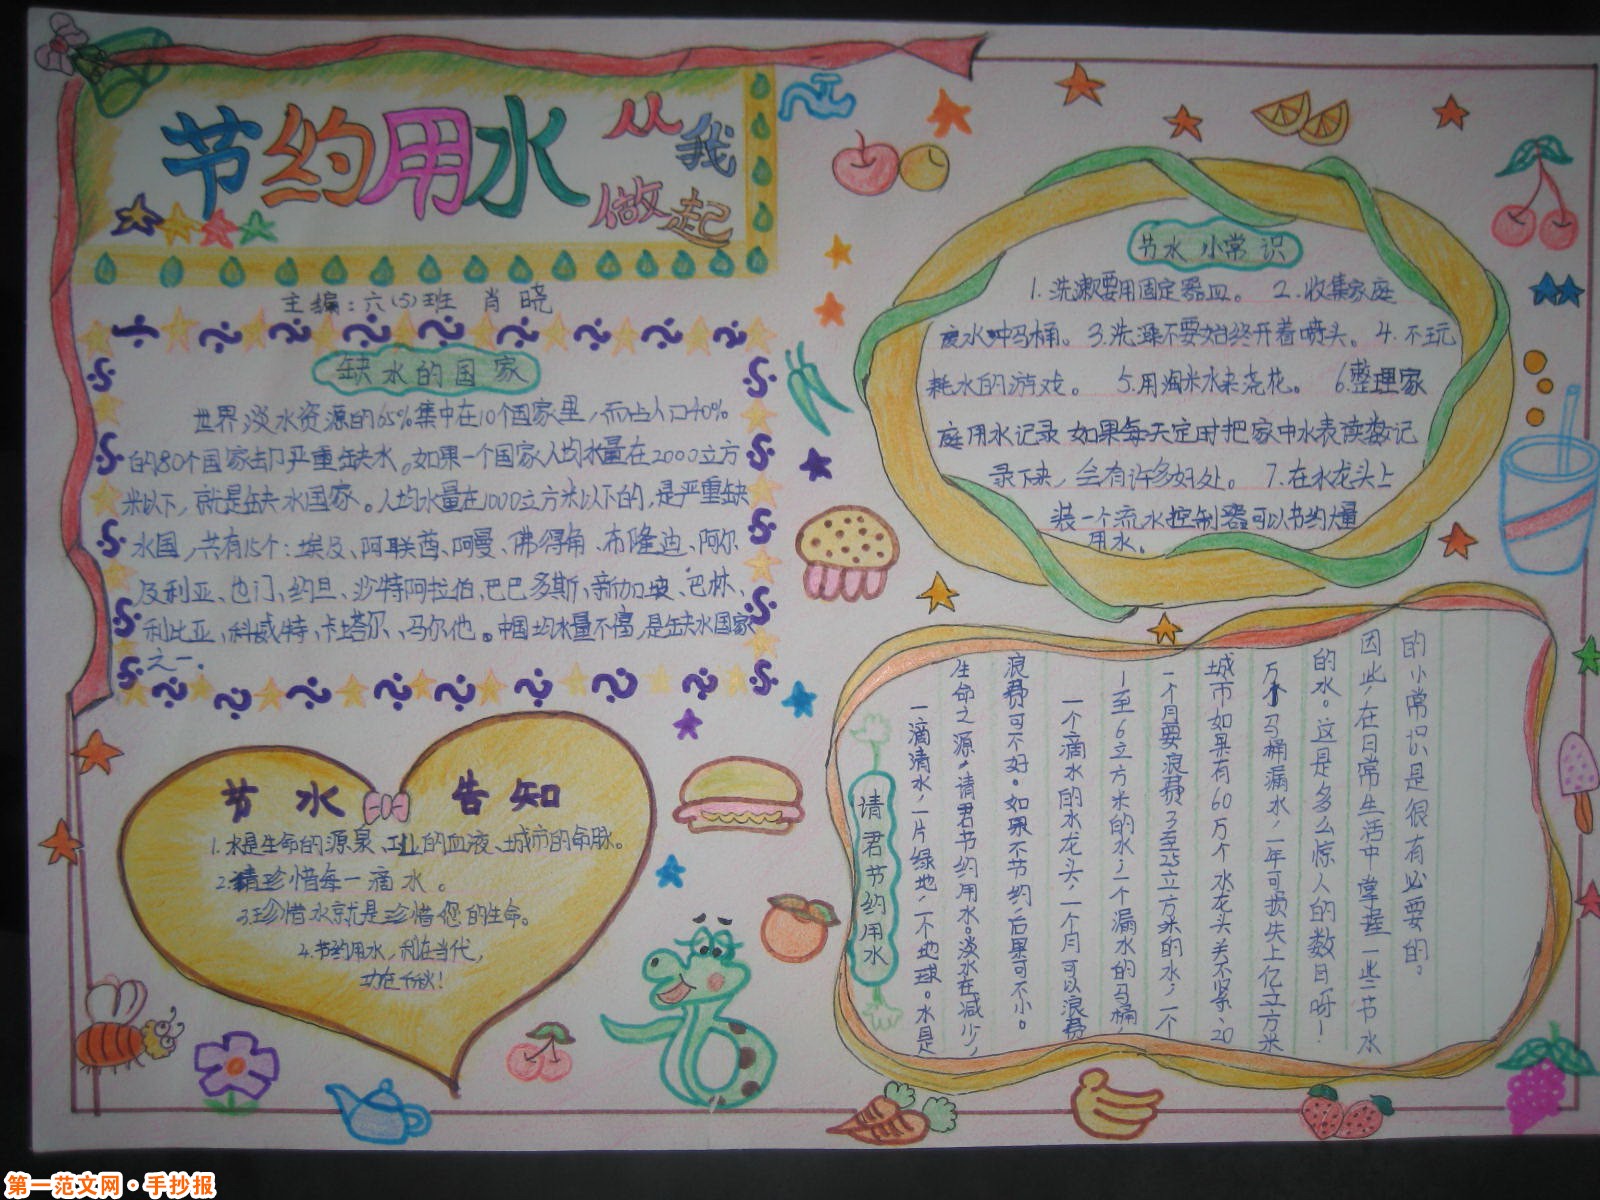 节约用水
从我
做起
主编：六（5）班 肖晓
缺水的国家
世界淡水资源的65%集中在10个国家里，而占人口40%
的80个国家却严重缺水。如果一个国家人均水量在2000立方
米以下，就是缺水国家。人均水量在1000立方米以下的，是严重缺
水国，共有15个：埃及、阿联酋、阿曼、佛得角、布隆迪、阿尔
及利亚、也门、约旦、沙特阿拉伯、巴巴多斯、新加坡、巴林、
利比亚、科威特、卡塔尔、马尔他。中国均水量不富，是缺水国家
之一。
节水告知
1.水是生命的源泉、工业的血液、城市的命脉。
2.请珍惜每一滴水。
3.珍惜水就是珍惜您的生命。
4.节约用水，利在当代，
功在千秋！
节水小常识
1.洗漱要用固定器皿。 2.收集家庭
废水冲马桶。3.洗澡不要始终开着喷头。4.不玩
耗水的游戏。 5.用淘米水来浇花。 6.整理家
庭用水记录 如果每天定时把家中水表读数记
录下来，会有许多好处。 7.在水龙头上
装一个流水控制器可以节约大量
用水。
请君节约用水
一滴清水，一片绿地，一个地球。水是
生命之源，请君节约用水。淡水在减少，
浪费可不好。如果不节约，后果可不小。
一个滴水的水龙头，一个月可以浪费
1至6立方米的水；一个漏水的马桶，
一个月要浪费3至25立方米的水；一个
城市如果有60万个水龙头关不紧、20
万个马桶漏水，一年可损失上亿立方米
的水。这是多么惊人的数目呀！
因此，在日常生活中掌握一些节水
的小常识是很有必要的。
第一范文网·手抄报